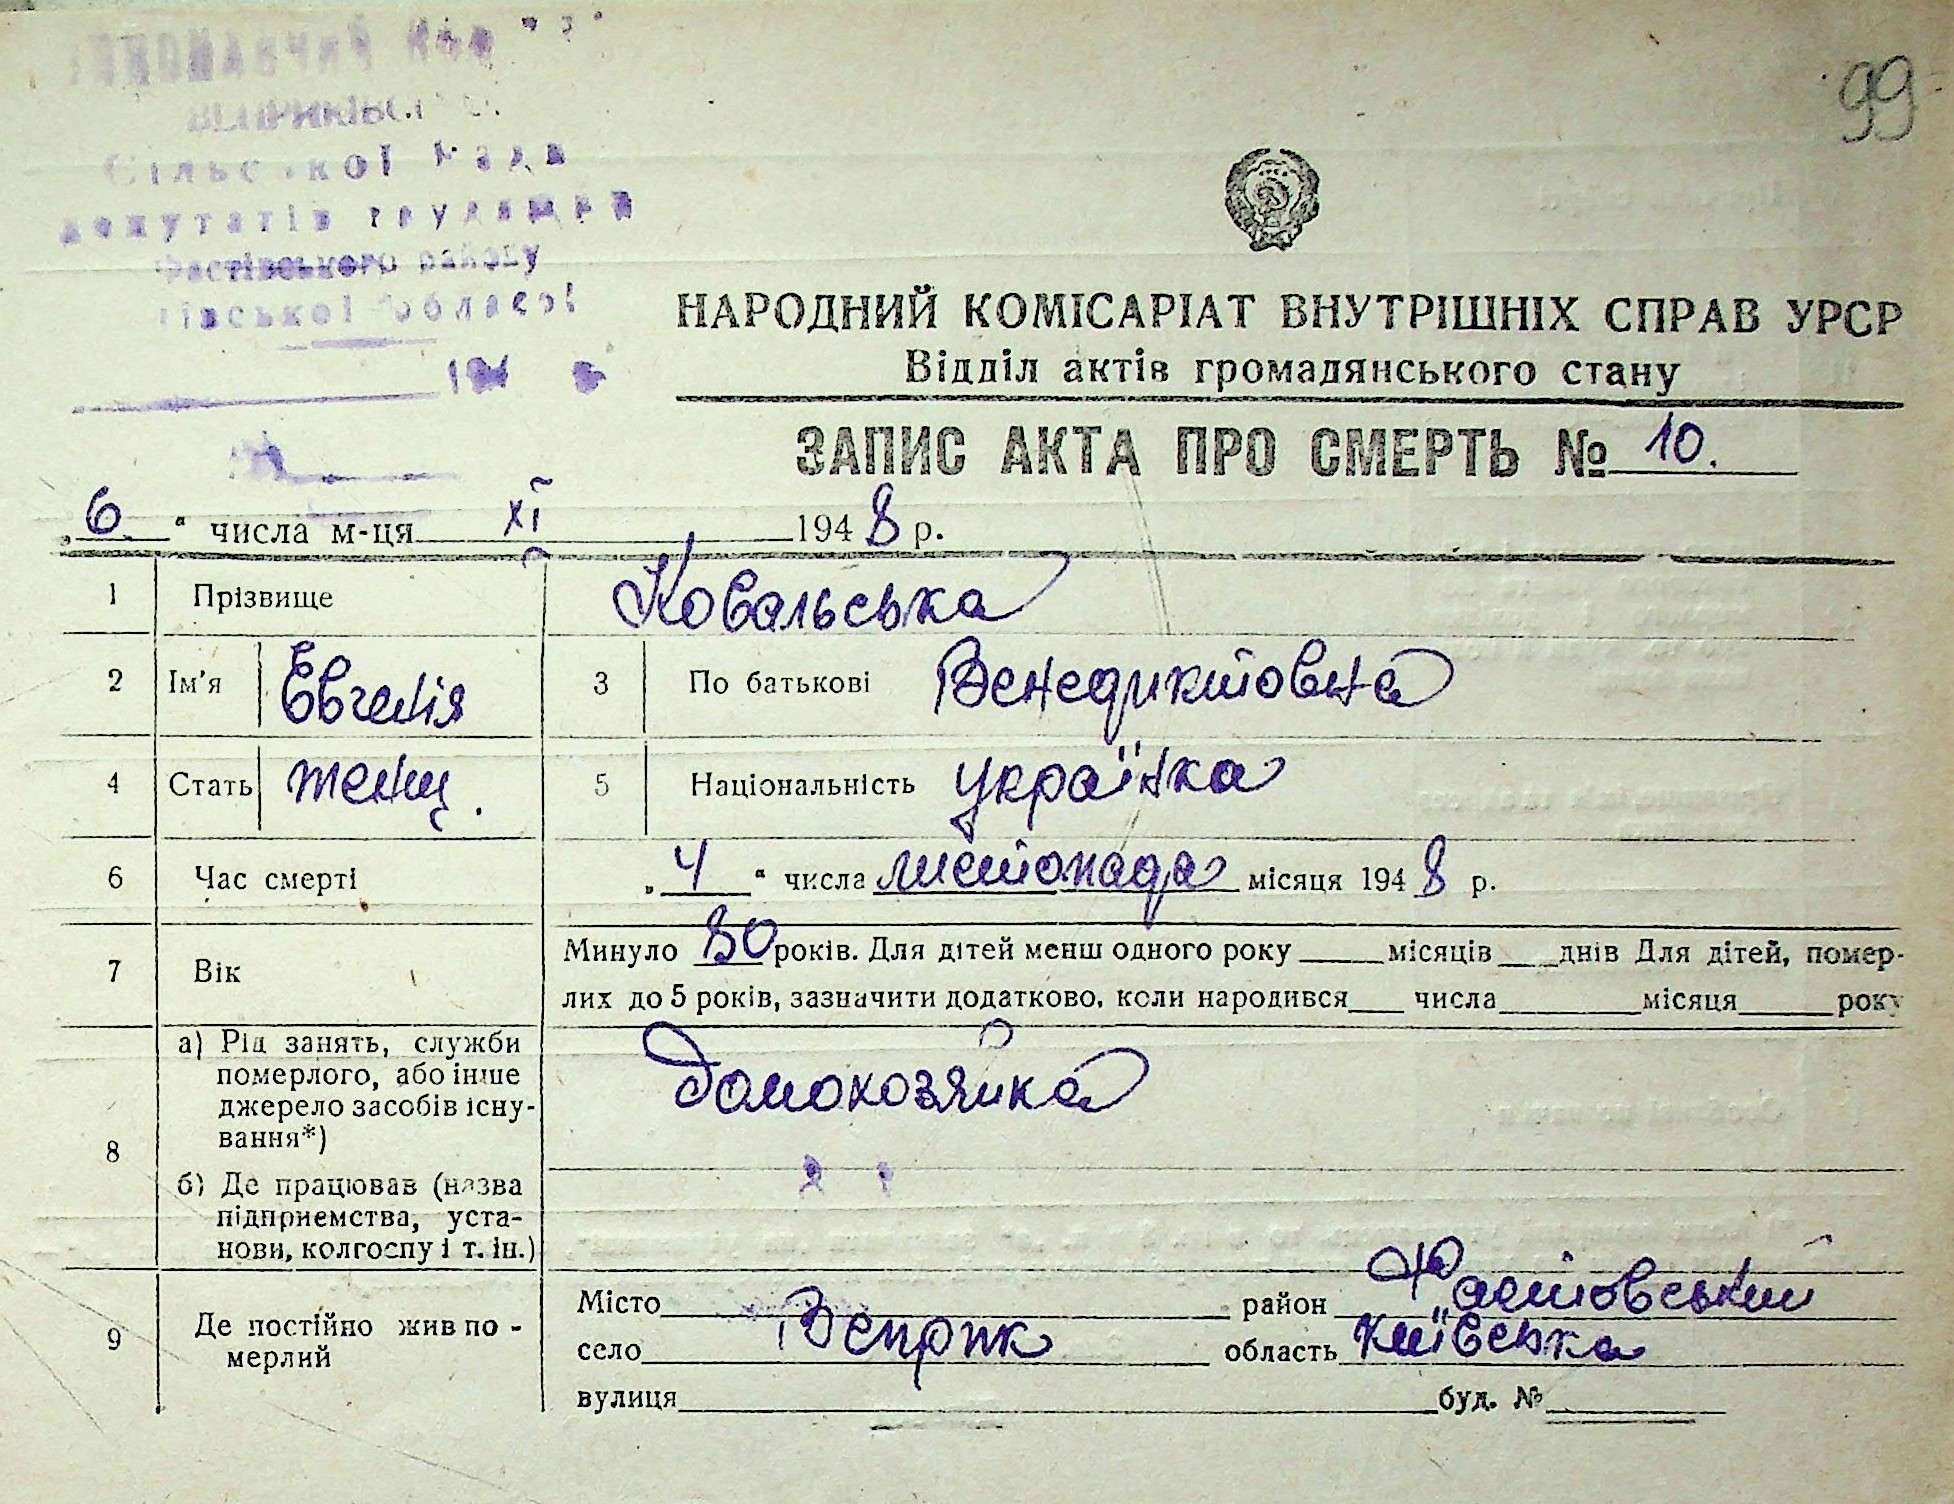 99
Сільської Рада
депутатів трудящих
Фастівського району
області
194
НАРОДНИЙ КОМІСАРІАТ ВНУТРІШНІХ СПРАВ УРСР
Відділ актів громадянського стану
ЗАПИС АКТА ПРО СМЕРТЬ № 10.
„6" числа м-ця XI 1948 р.
1 Прізвище Ковальська
2 Ім'я Євгенія 3 По батькові Венедиктовна
4 Стать женщ. 5 Національність українка
6 Час смерті „4" числа листопада місяця 1948 р.
7 Вік Минуло 80 років. Для дітей менш одного року ___ місяців ___ днів Для дітей, помер-
лих до 5 років, зазначити додатково, коли народився ___ числа ___ місяця ___ року
8 а) Рід занять, служби
померлого, або інше
джерело засобів існу-
вання*) домохозяйка
б) Де працював (назва
підприємства, уста-
нови, колгоспу і т. ін.)
9 Де постійно жив по-
мерлий
Місто ___ район Фастовський
село Веприк область Київська
вулиця ___ буд. № ___